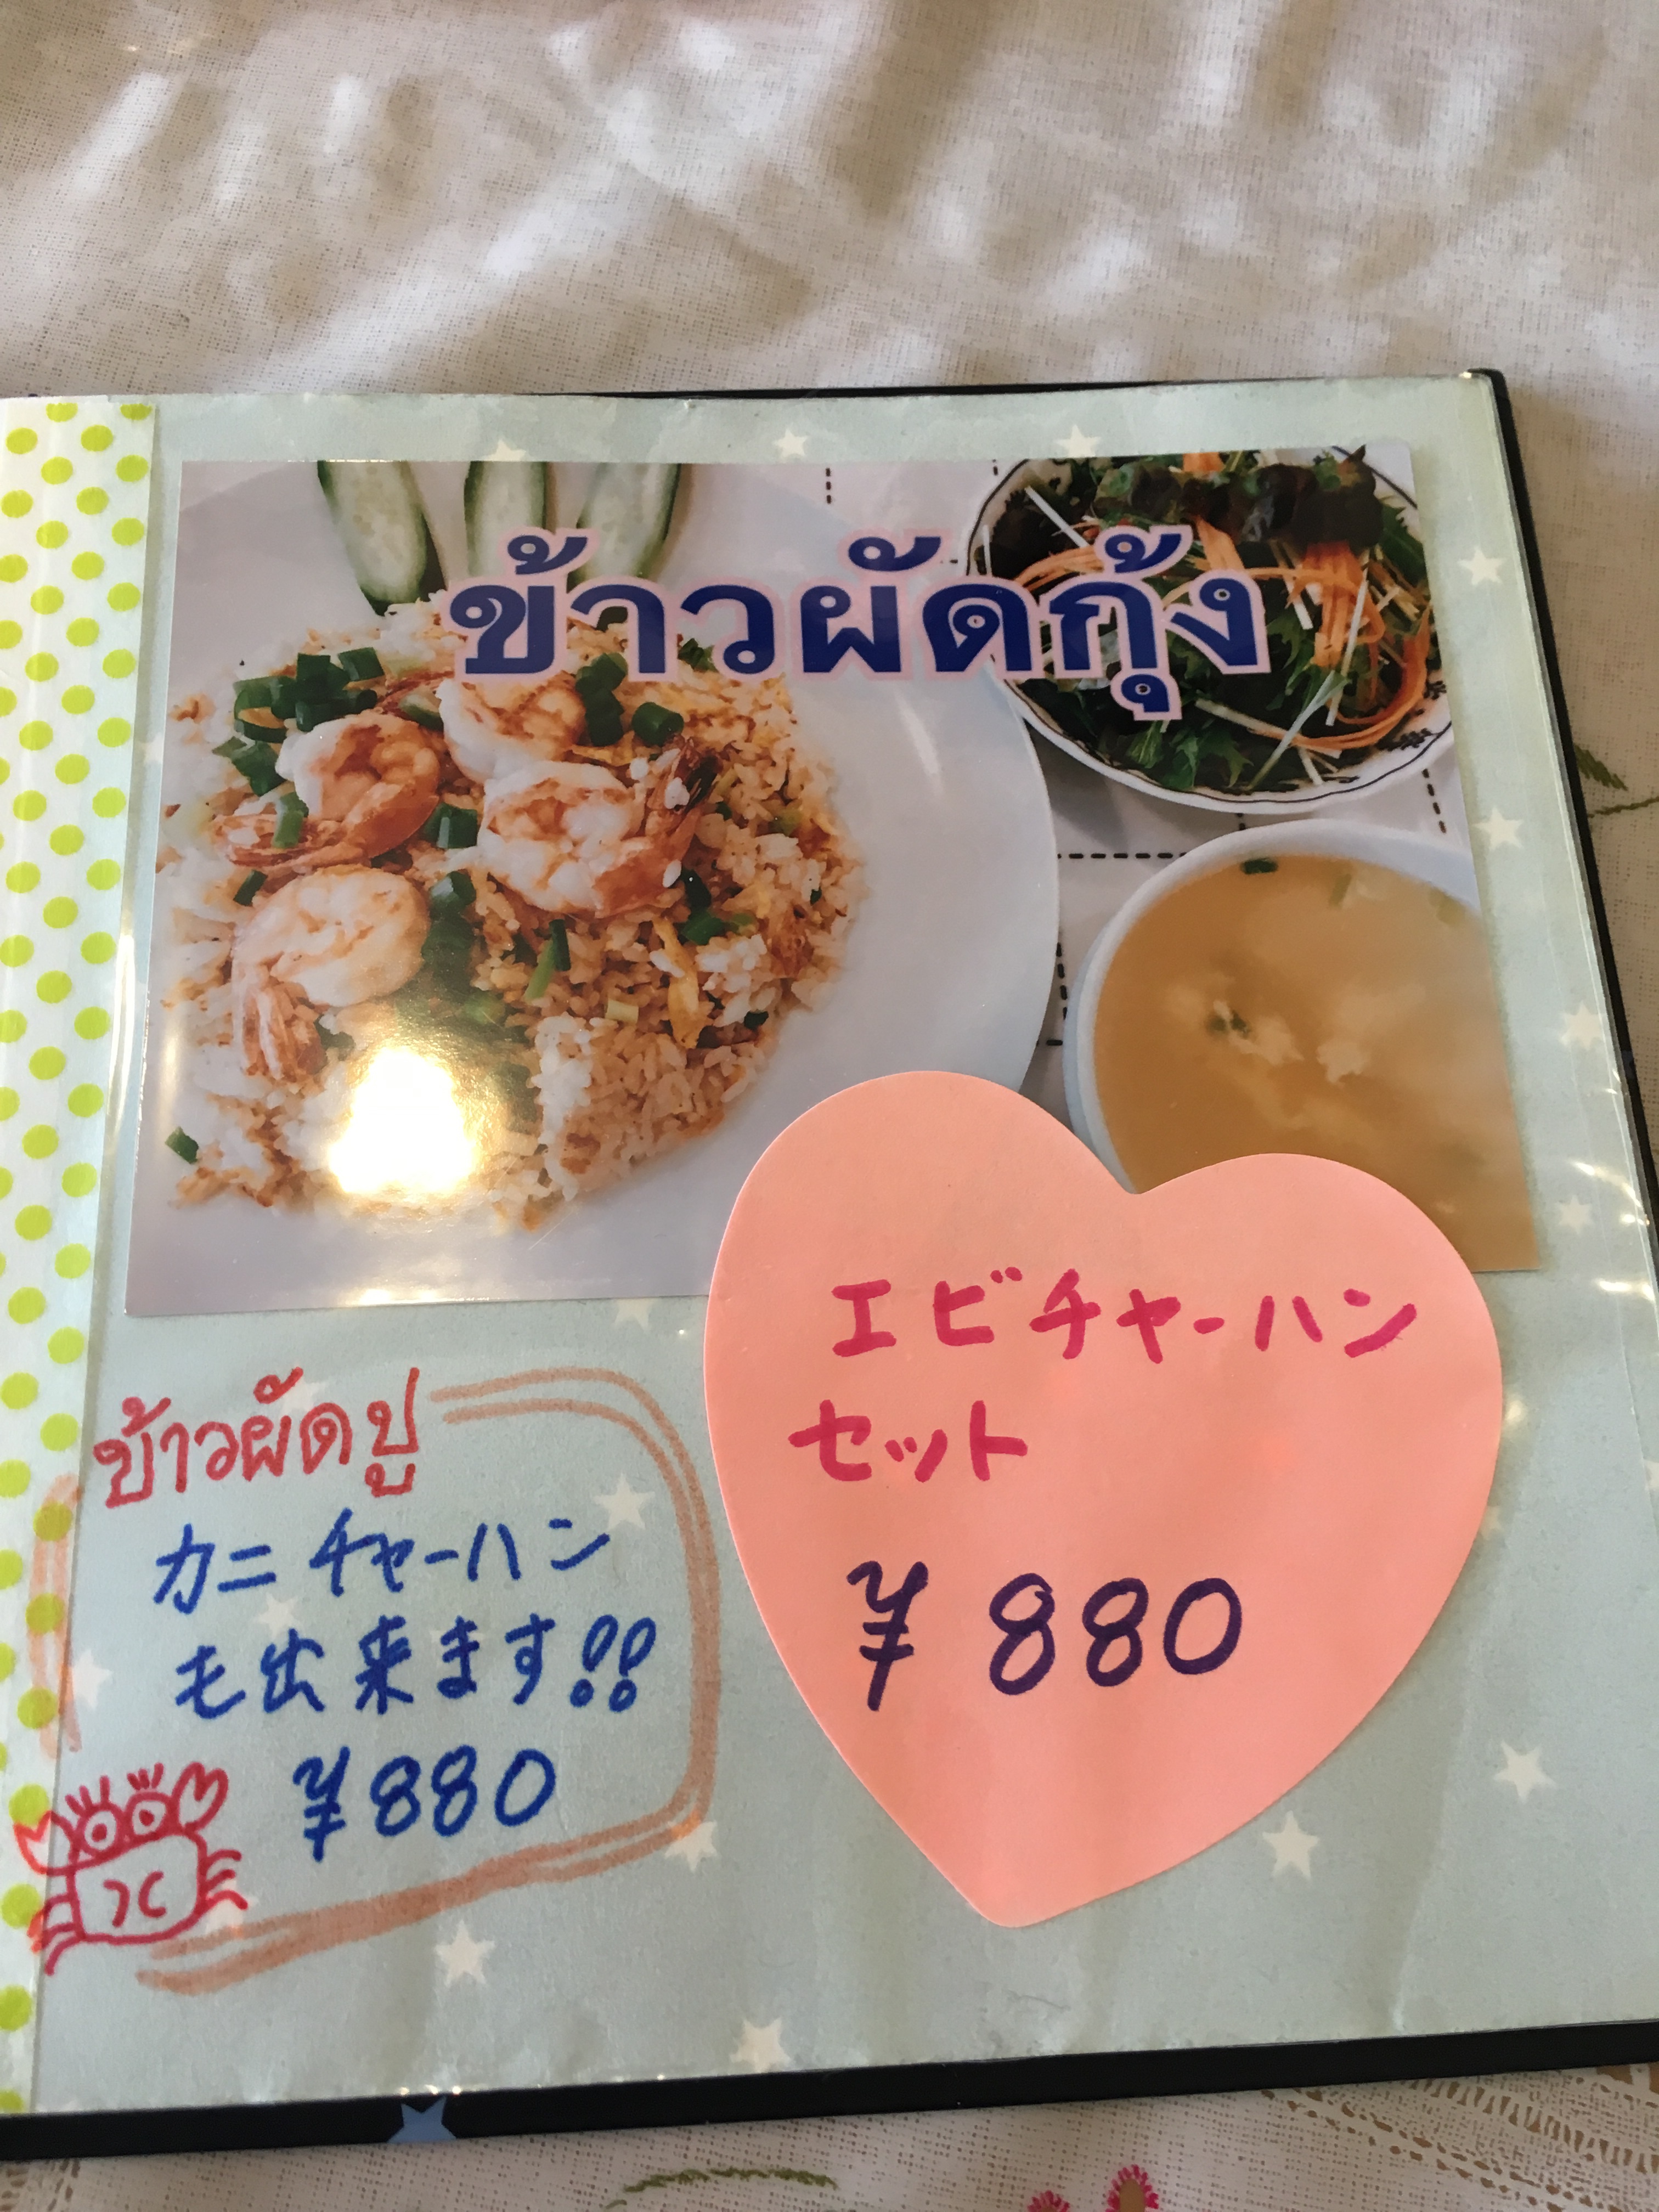 ข้าวผัดกุ้ง
エビチャーハン
セット
¥880
ข้าวผัดปู
カニチャーハン
も出来ます!!
¥880